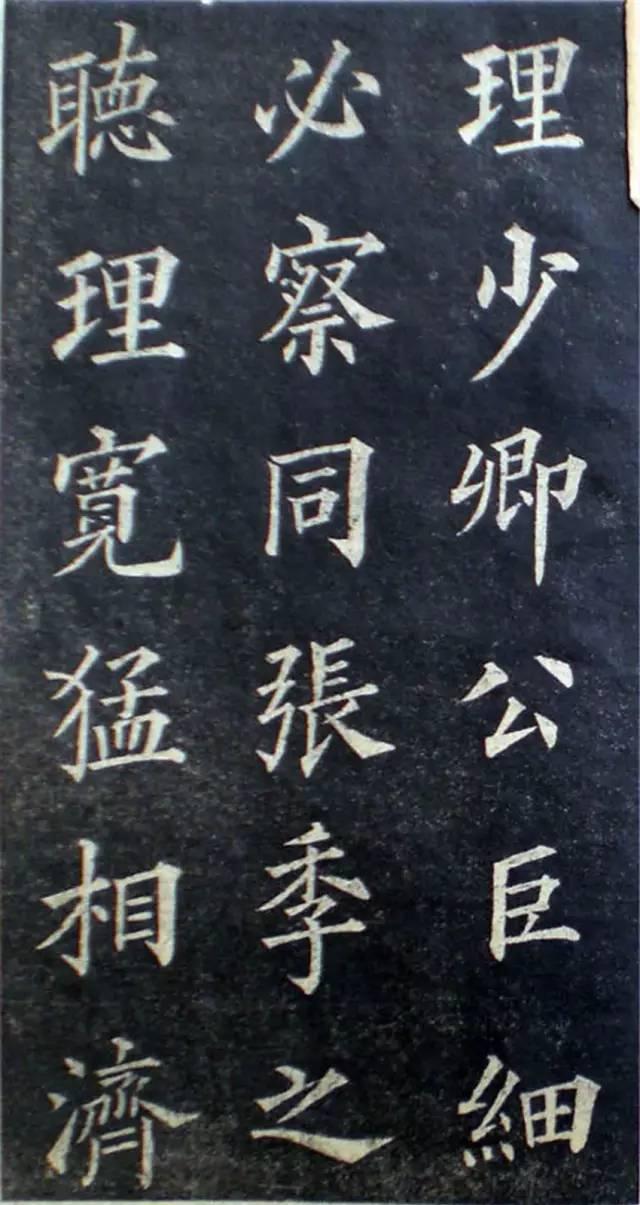 理少卿公巨細
必察同張季之
聴理寛猛相濟